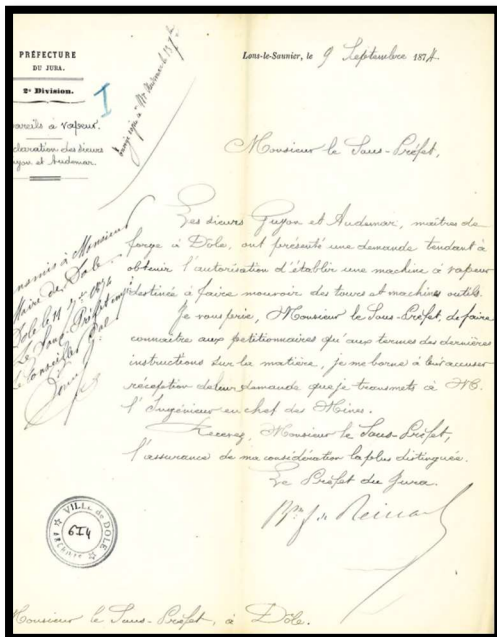 PRÉFECTURE
DU JURA.
2e Division.
I
areils à vapeur.
claration des sieurs
uyon et Audemar.
Lons-le-Saunier, le 9 Septembre 1874.
Monsieur le Sous-Préfet,
Les sieurs Guyon et Audemar, maîtres de
forge à Dôle, ont présenté une demande tendant à
obtenir l'autorisation d'établir une machine à vapeur
destinée à faire mouvoir des tours et machines outils.
Je vous prie, Monsieur le Sous-Préfet, de faire
connaître aux pétitionnaires qu'aux termes des dernières
instructions sur la matière, je me borne à leur accuser
réception de leur demande que je transmets à M.
l'Ingénieur en chef des Mines.
Recevez, Monsieur le Sous-Préfet,
l'assurance de ma considération la plus distinguée.
Le Préfet du Jura.
nsmis à Monsieur
Maire de Dole
Dole le 11 7bre 1874
Le Sous-Préfet
Le Conseiller
VILLE de DOLE
6I4
ARCHIVES
Monsieur le Sous-Préfet, à Dôle.